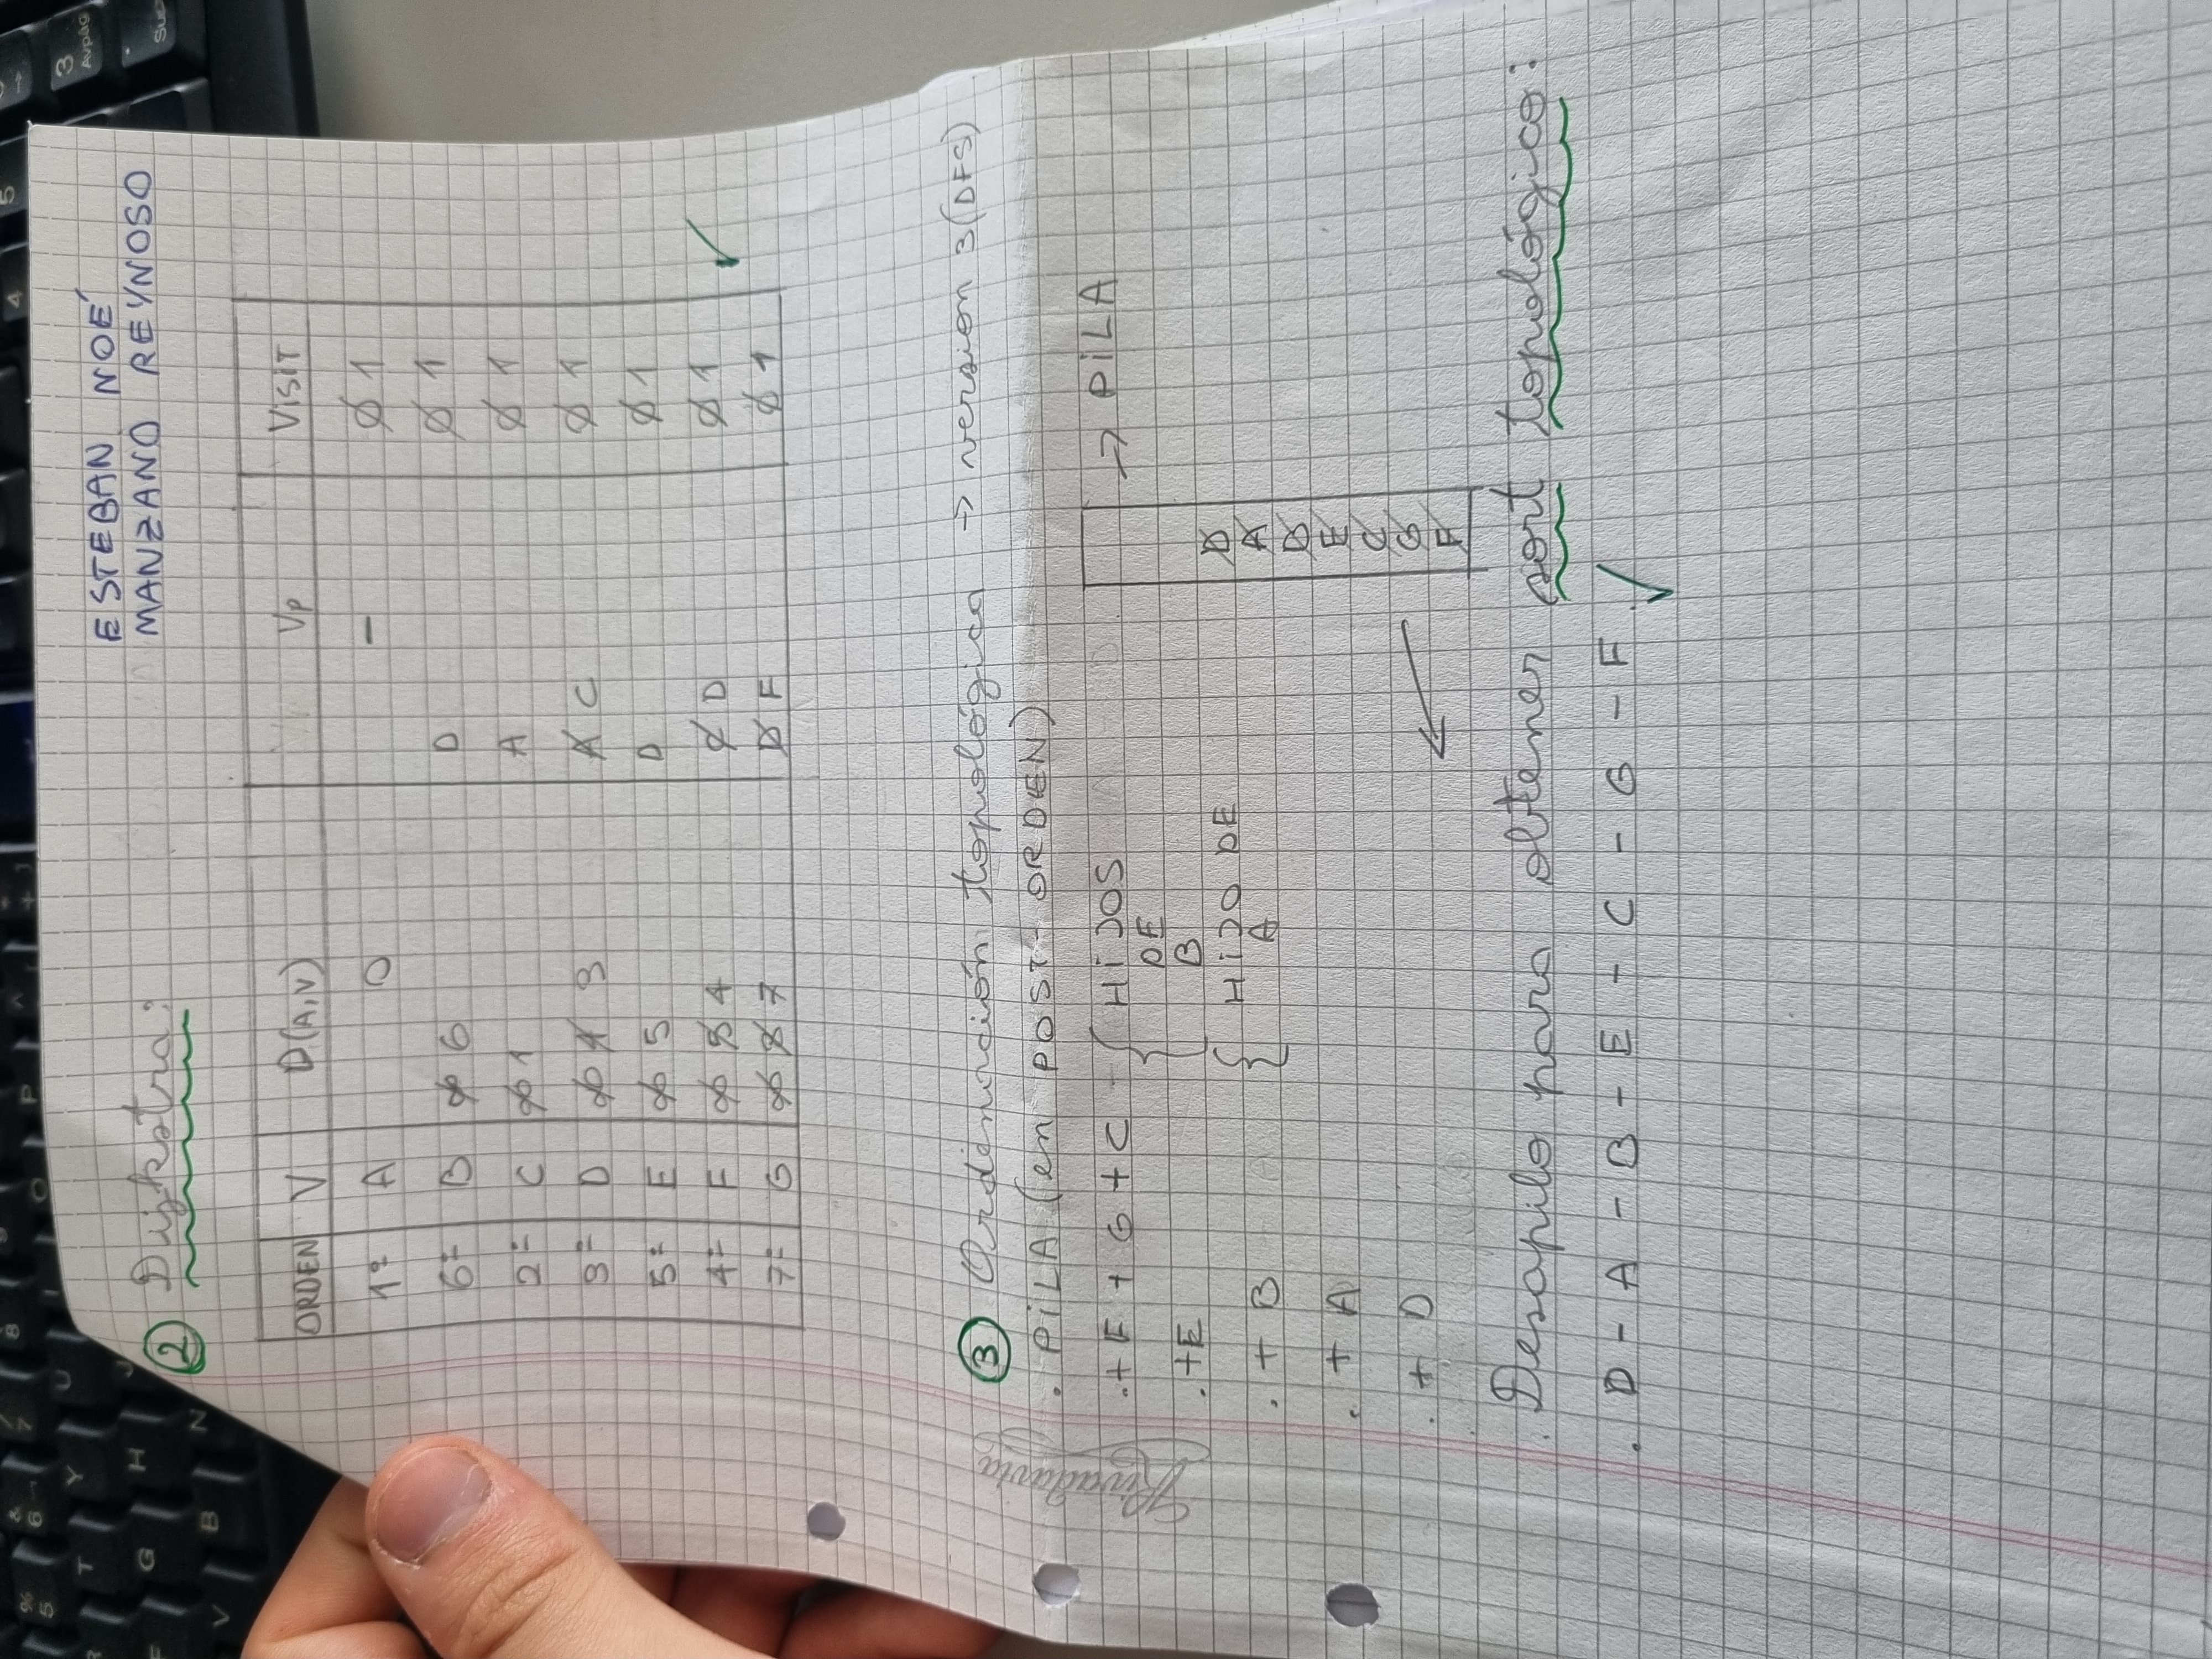 ESTEBAN NOÉ
MANZANO REYNOSO
2 Dijkstra:
ORDEN V D(A,V) Vp Visit
1º A 0 - 0 1
6º B ∞ 6 D 0 1
2º C ∞ 1 A 0 1
3º D ∞ 4 3 A C 0 1
5º E ∞ 5 D 0 1
4º F ∞ 5 4 C D 0 1
7º G ∞ 8 7 D F 0 1
3 Ordenación topológica → version 3 (DFS)
. PILA (en POST-ORDEN)
.+ F + G + C { HIJOS DE B
→ PILA
.+E
. + B { HIJO DE A
. + A
. + D
D
A
B
E
C
G
F
. Desapilo para obtener sort topológico:
. D - A - B - E - C - G - F.
Rivadavia
% 5
& 6
/ 7
8
T
Y
U
O
P
G
H
J
V
B
N
4
5
3
AvPág